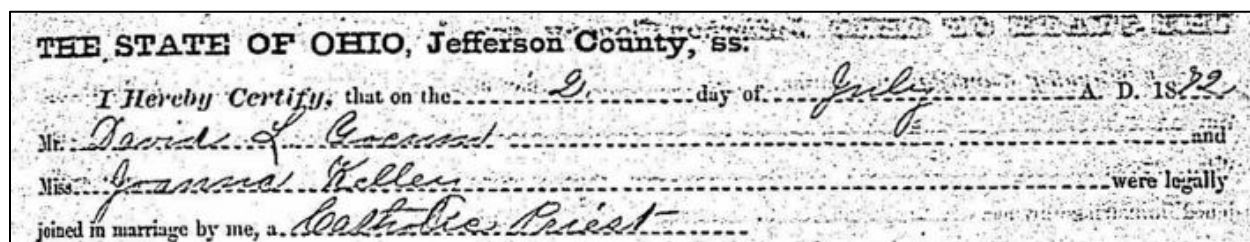 THE STATE OF OHIO, Jefferson County, ss.
I Hereby Certify, that on the 2 day of July A. D. 1872
Mr. David L and
Miss Joanna Kelley were legally
joined in marriage by me, a Catholic Priest